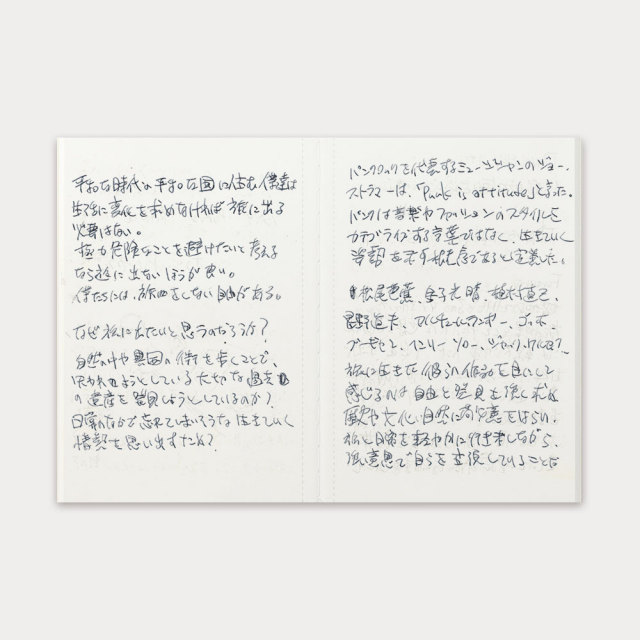 平和な時代の平和な国に住む僕達は
生活に変化を求めなければ旅に出る
必要はない。
極力危険なことを避けたいと考える
なら旅に出ないほうが良い。
僕たちには、旅をしない自由がある。
なぜ旅に出たいと思うのだろうか？
自然の中や異国の街を歩くことで、
失われようとしている大切な過去
の遺産を発見しようとしているのか？
日常のなかで忘れてしまいそうな 生きていく
情熱を思い出すため？
パンクロックを代表するミュージシャンのジョー・
ストラマーは、「Punk is attitude」と言った。
パンクは音楽やファッションのスタイルを
カテゴライズする言葉ではなく、生きていく
姿勢を示す概念であると定義した。
松尾芭蕉、金子光晴、植村直己、
星野道夫、マルチェームランボー、ゴッホ、
ブーゼセン、ヘンリー・ソロー、ジャック・ケルアック
旅に生きた彼らの作品を目にして
感じるのは自由と発見を強く求め
歴史や文化、自然に対し敬意をはらい、
旅と日常を軽やかに行き来しながら、
強い意思で自らを主張していることだ